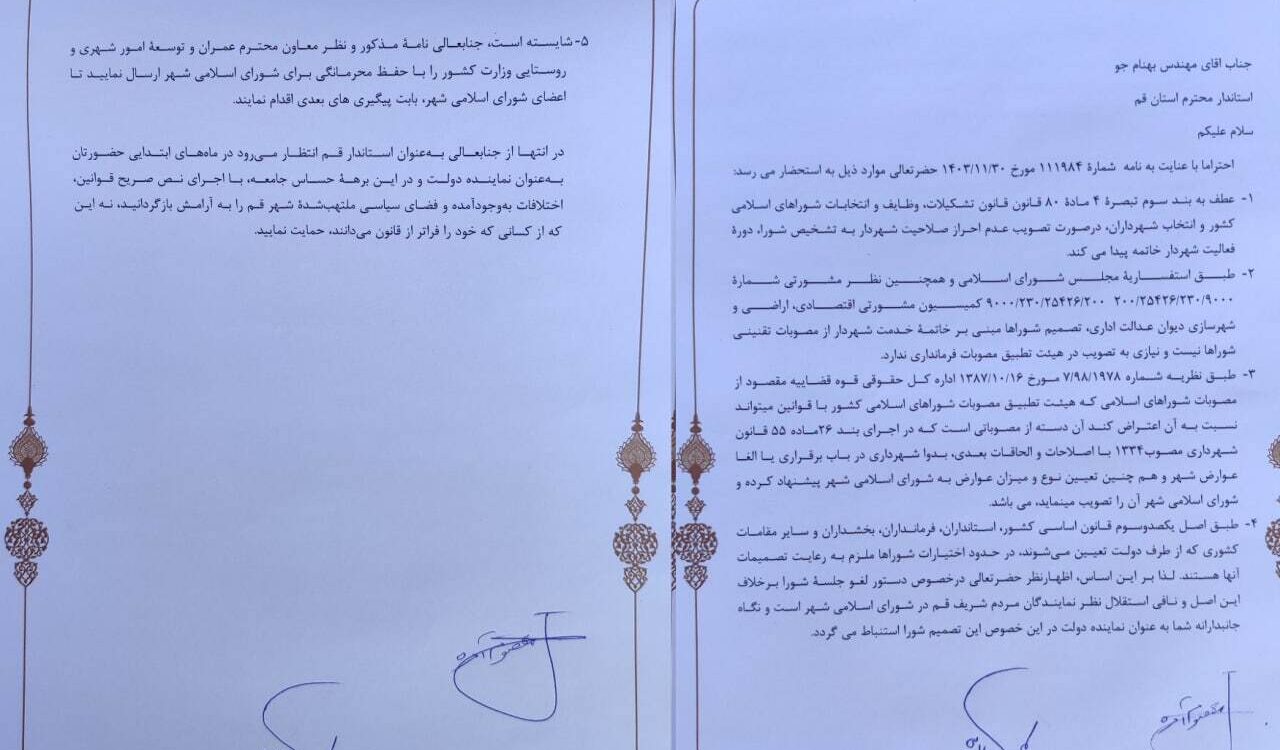 جناب اقای مهندس بهنام جو
استاندار محترم استان قم
سلام علیکم
احتراما با عنایت به نامه شمارهٔ ۱۱۱۹۸۴ مورخ ۱۴۰۳/۱۱/۳۰ حضرتعالی موارد ذیل به استحضار می رسد:
۱- عطف به بند سوم تبصرهٔ ۴ مادهٔ ۸۰ قانون قانون تشکیلات، وظایف و انتخابات شوراهای اسلامی
کشور و انتخاب شهرداران، درصورت تصویب عدم احراز صلاحیت شهردار به تشخیص شورا، دورهٔ
فعالیت شهردار خاتمه پیدا می کند.
۲- طبق استفساریهٔ مجلس شورای اسلامی و همچنین نظر مشورتی شمارهٔ
۲۰۰/۲۵۴۲۶/۲۳۰/۹۰۰۰ ۹۰۰۰/۲۳۰/۲۵۴۲۶/۲۰۰ کمیسیون مشورتی اقتصادی، اراضی و
شهرسازی دیوان عدالت اداری، تصمیم شوراها مبنی بر خاتمهٔ خدمت شهردار از مصوبات تقنینی
شوراها نیست و نیازی به تصویب در هیئت تطبیق مصوبات فرمانداری ندارد.
۳- طبق نظریه شماره ۷/۹۸/۱۹۷۸ مورخ ۱۳۸۷/۱۰/۱۶ اداره کل حقوقی قوه قضاییه مقصود از
مصوبات شوراهای اسلامی که هیئت تطبیق مصوبات شوراهای اسلامی کشور با قوانین میتواند
نسبت به آن اعتراض کند آن دسته از مصوباتی است که در اجرای بند ۲۶ماده ۵۵ قانون
شهرداری مصوب۱۳۳۴ با اصلاحات و الحاقات بعدی، بدوا شهرداری در باب برقراری یا الغا
عوارض شهر و هم چنین تعیین نوع و میزان عوارض به شورای اسلامی شهر پیشنهاد کرده و
شورای اسلامی شهر آن را تصویب مینماید، می باشد.
۴- طبق اصل یکصدوسوم قانون اساسی کشور، استانداران، فرمانداران، بخشداران و سایر مقامات
کشوری که از طرف دولت تعیین می‌شوند، در حدود اختیارات شوراها ملزم به رعایت تصمیمات
آنها هستند. لذا بر این اساس، اظهارنظر حضرتعالی درخصوص دستور لغو جلسهٔ شورا برخلاف
این اصل و نافی استقلال نظر نمایندگان مردم شریف قم در شورای اسلامی شهر است و نگاه
جانبدارانه شما به عنوان نماینده دولت در این خصوص این تصمیم شورا استنباط می گردد.
۵- شایسته است، جنابعالی نامهٔ مذکور و نظر معاون محترم عمران و توسعهٔ امور شهری و
روستایی وزارت کشور را با حفظ محرمانگی برای شورای اسلامی شهر ارسال نمایید تا
اعضای شورای اسلامی شهر، بابت پیگیری های بعدی اقدام نمایند.
در انتها از جنابعالی به‌عنوان استاندار قم انتظار می‌رود در ماه‌های ابتدایی حضورتان
به‌عنوان نماینده دولت و در این برههٔ حساس جامعه، با اجرای نص صریح قوانین،
اختلافات به‌وجودآمده و فضای سیاسی ملتهب‌شدهٔ شهر قم را به آرامش بازگردانید، نه این
که از کسانی که خود را فراتر از قانون می‌دانند، حمایت نمایید.